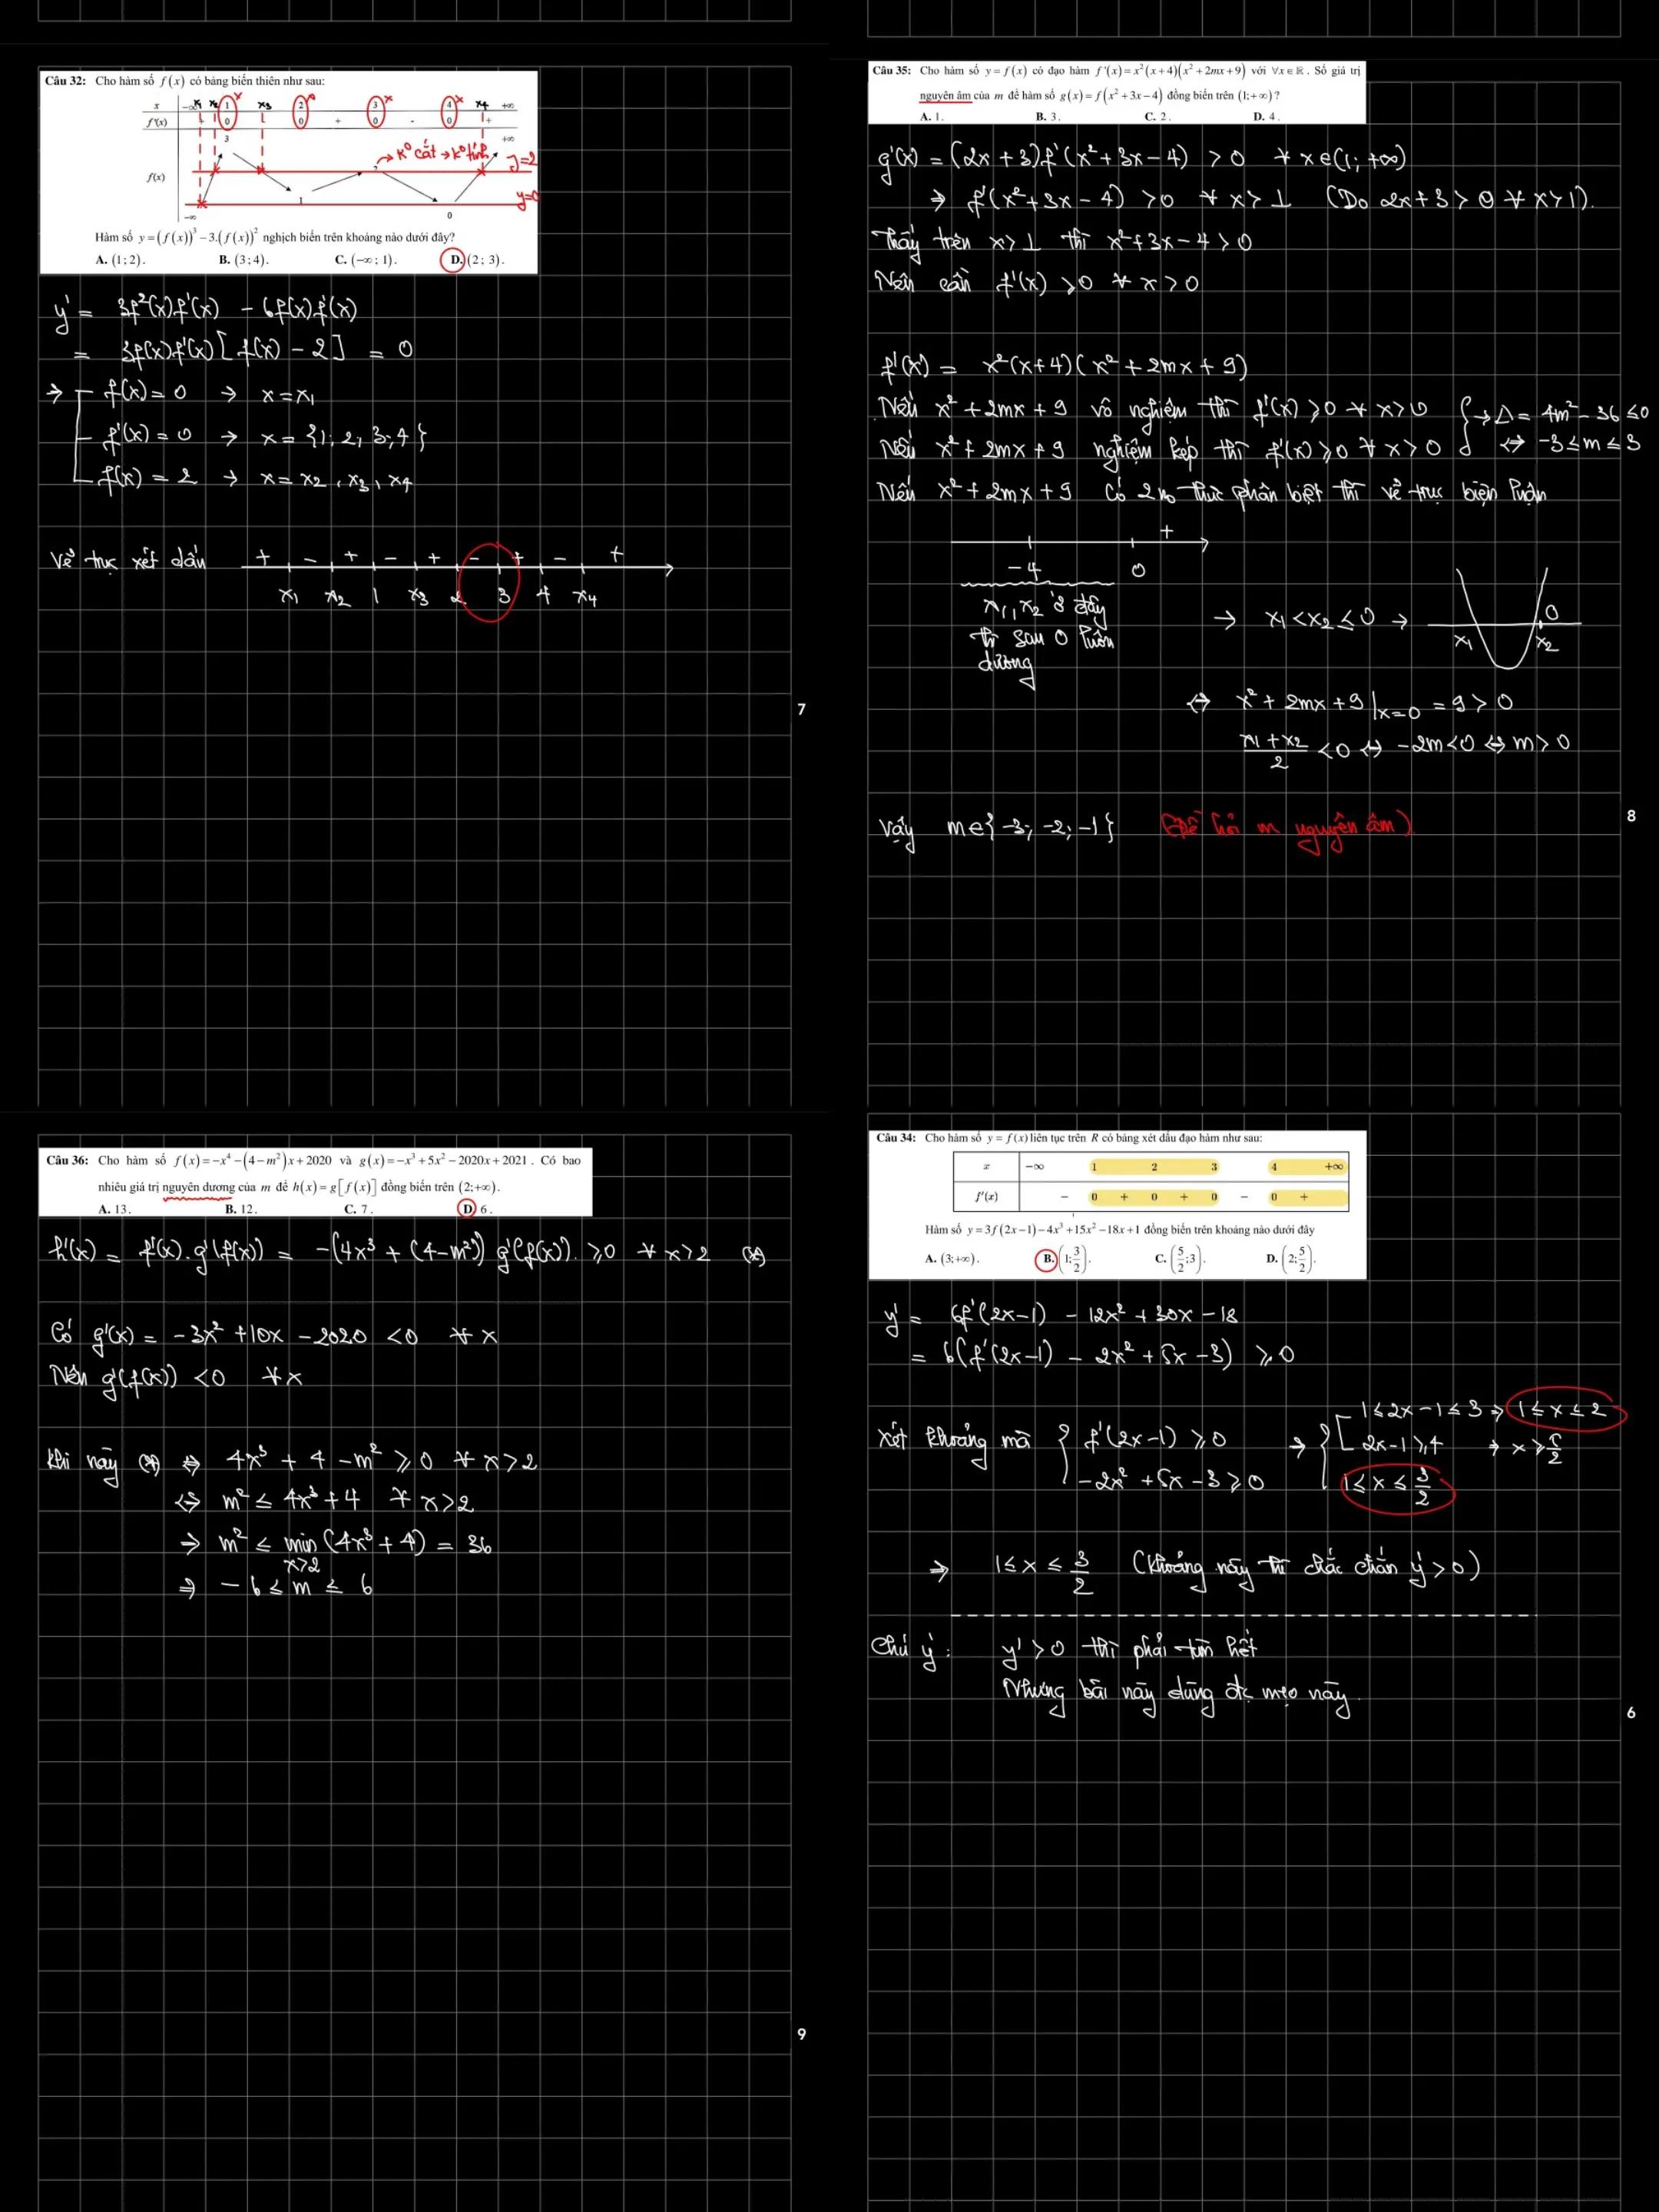 Câu 32: Cho hàm số f(x) có bảng biến thiên như sau:
x −∞ x₁ x₂ 1 x₃ 2 3 4 x₄ +∞
f'(x) + 0 0 + 0 - 0 +
3 +∞
→ K° cắt → K° tính
y=2
f(x)
1
y=0
−∞ 0
Hàm số y=(f(x))³−3.(f(x))² nghịch biến trên khoảng nào dưới đây?
A. (1;2). B. (3;4). C. (−∞;1). D. (2;3).
y' = 3f²(x)f'(x) - 6f(x)f'(x)
= 3f(x)f'(x)[f(x) - 2] = 0
⇒ f(x) = 0 → x = x₁
f'(x) = 0 → x = {1; 2; 3; 4}
f(x) = 2 → x = x₂, x₃, x₄
Vẽ trục xét dấu + - + - + - + - +
x₁ x₂ 1 x₃ 2 3 4 x₄
7
Câu 35: Cho hàm số y=f(x) có đạo hàm f'(x)=x²(x+4)(x²+2mx+9) với ∀x∈ℝ. Số giá trị
nguyên âm của m để hàm số g(x)=f(x²+3x−4) đồng biến trên (1;+∞)?
A. 1. B. 3. C. 2. D. 4.
g'(x) = (2x+3)f'(x²+3x-4) > 0 ∀x∈(1;+∞)
⇒ f'(x²+3x-4) > 0 ∀x>1 (Do 2x+3>0 ∀x>1).
Thấy trên x>1 thì x²+3x-4>0
Nên cần f'(x) ≥0 ∀x>0
f'(x) = x²(x+4)(x²+2mx+9)
Nếu x²+2mx+9 vô nghiệm thì f'(x) ≥0 ∀x>0 → Δ = 4m²-36≤0
Nếu x²+2mx+9 nghiệm kép thì f'(x) ≥0 ∀x>0 ⇔ -3≤m≤3
Nếu x²+2mx+9 có 2 n₀ thực phân biệt thì vẽ trục biện luận
+
-4 0
x₁, x₂ ở đây
thì sau 0 luôn
dương
→ x₁<x₂≤0 →
x₁ 0 x₂
⇔ x²+2mx+9|x=0 = 9>0
(x₁+x₂)/2 <0 ⇔ -2m<0 ⇔ m>0
Vậy m∈{-3; -2; -1} (Đề hỏi m nguyên âm)
8
Câu 36: Cho hàm số f(x)=−x⁴−(4−m²)x+2020 và g(x)=−x³+5x²−2020x+2021. Có bao
nhiêu giá trị nguyên dương của m để h(x)=g[f(x)] đồng biến trên (2;+∞).
A. 13. B. 12. C. 7. D. 6.
h'(x) = f'(x).g'(f(x)) = -(4x³+(4-m²)) g'(f(x)). ≥0 ∀x>2 (*)
Có g'(x) = -3x²+10x-2020 <0 ∀x
Nên g'(f(x)) <0 ∀x
Khi này (*) ⇔ 4x³+4-m² ≥0 ∀x>2
⇔ m² ≤ 4x³+4 ∀x>2
⇒ m² ≤ min (4x³+4) = 36
x>2
⇒ -6 ≤ m ≤ 6
9
Câu 34: Cho hàm số y=f(x) liên tục trên R có bảng xét dấu đạo hàm như sau:
x −∞ 1 2 3 4 +∞
f'(x) − 0 + 0 + 0 − 0 +
Hàm số y=3f(2x−1)−4x³+15x²−18x+1 đồng biến trên khoảng nào dưới đây
A. (3;+∞). B. (1;3/2). C. (5/2;3). D. (2;5/2).
y' = 6f'(2x-1) - 12x²+30x-18
= 6(f'(2x-1) - 2x²+5x-3) ≥0
Xét khoảng mà { f'(2x-1) ≥0 ⇒ { [ 1≤2x-1≤3 ⇒ 1≤x≤2
2x-1≥4 ⇒ x≥5/2
-2x²+5x-3≥0 1≤x≤3/2
⇒ 1≤x≤3/2 (Khoảng này thì chắc chắn y'>0)
Chú ý: y'>0 thì phải tìm hết
Nhưng bài này dùng đc mẹo này.
6